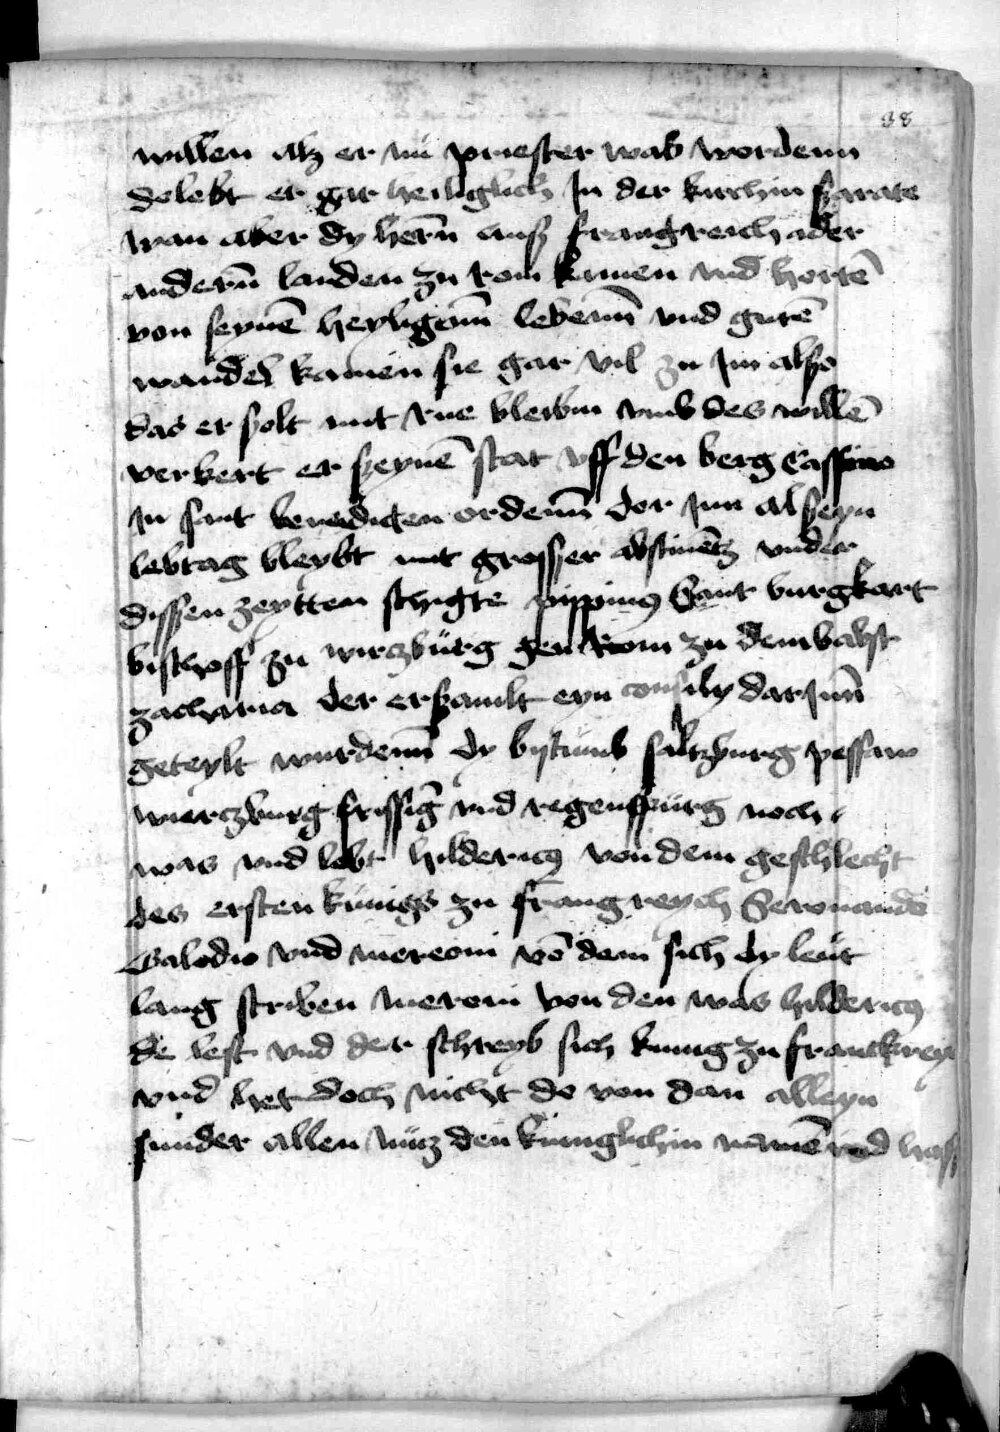 38
willen alz er nü priester wab wordenn
Do lebt er gar heiliglich In der kirchin Szarate
wan aber dy hern̄ ausz frangreich ader
andern̄ landen zu rom kamen vnd hortē
von seynē heyligenn̄ lebenn̄ vnd gutē
wandel kamen sie gar vil zu Im alszo
das er solt mit rue bleibin vmb des willē
verkert er szeynē stat vff den berg Cassino
In sant benedigten ordenn̄ dor Inn al szeyn
lebtag bleybt mit grosser abstinētz vnder
dissen zeytten schigte pippinus Sant burgkart
bischoff zu wirczbürg gen Rom zu dem babst
zacharia der erszamlt eyn consily dar Inn̄
geteylt wurdenn̄ dy bistumb saltzburg passaw
wierczburg frissiḡ vnd regenspürg noch
was vnd lebt hildericus von dem geschlecht
des ersten künigs zu frangreych Seronando
Calodio vnd mereoni vō dem sich dy leüt
lang scriben meroni von den was hildericus
de lest vnd der schreyb sich kunig zu franckrey
vnd het doch nicht do von dan alleyn
sunder allen nüz den kuniglichin namē vnd